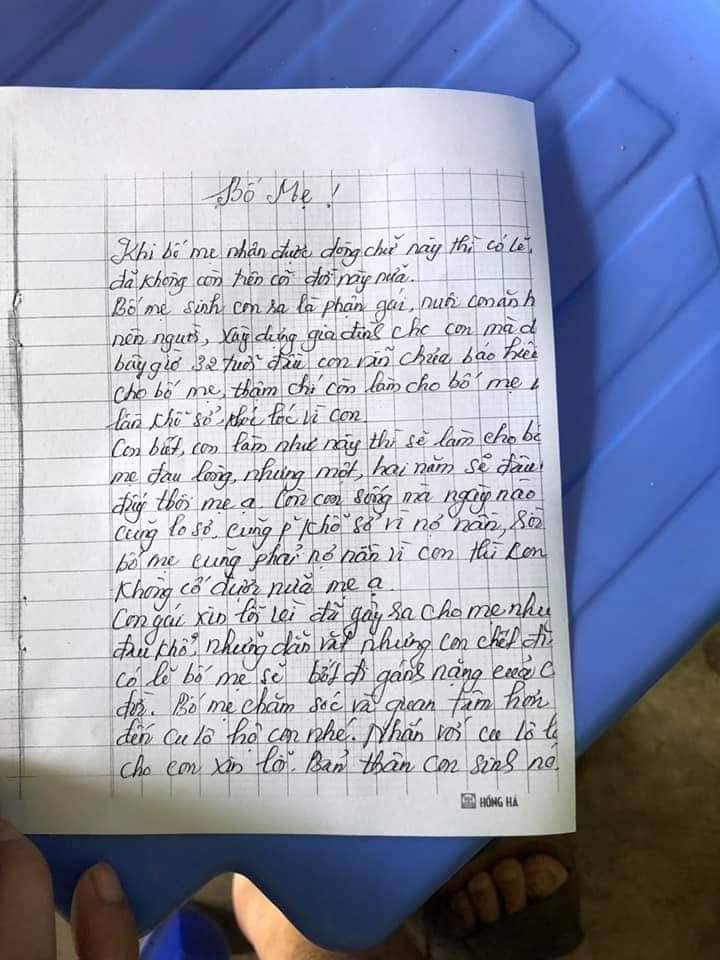 Bố Mẹ !
Khi bố mẹ nhận được dòng chữ này thì có lẽ,
đã không còn trên cõi đời này nữa.
Bố mẹ sinh con ra là phận gái, nuôi con ăn h
nên người, xây dựng gia đình cho con mà d
bây giờ 32 tuổi đầu con vẫn chưa báo hiế
cho bố mẹ, thậm chí còn làm cho bố mẹ
khổ sở, vì con
Con biết, con làm như này thì sẽ làm cho bố
mẹ đau lòng, nhưng một, hai năm sẽ đâu
đấy thôi mẹ ạ. Còn con sống mà ngày nào
cũng lo sợ, cũng p' khổ sở vì nợ nần,
bố mẹ cũng phải nợ nần vì con thì con
không cố được nữa mẹ ạ.
Con gái xin lỗi vì đã gây ra cho mẹ như
đau khổ, những dằn vặt nhưng con chết đi
có lẽ bố mẹ sẽ bớt đi gánh nặng cuộc
đời. Bố mẹ chăm sóc và quan tâm hơn
đến cu lô hộ con nhé. Nhắn với cu lô
cho con xin lỗi. Bản thân con sinh nó
HỒNG HÀ